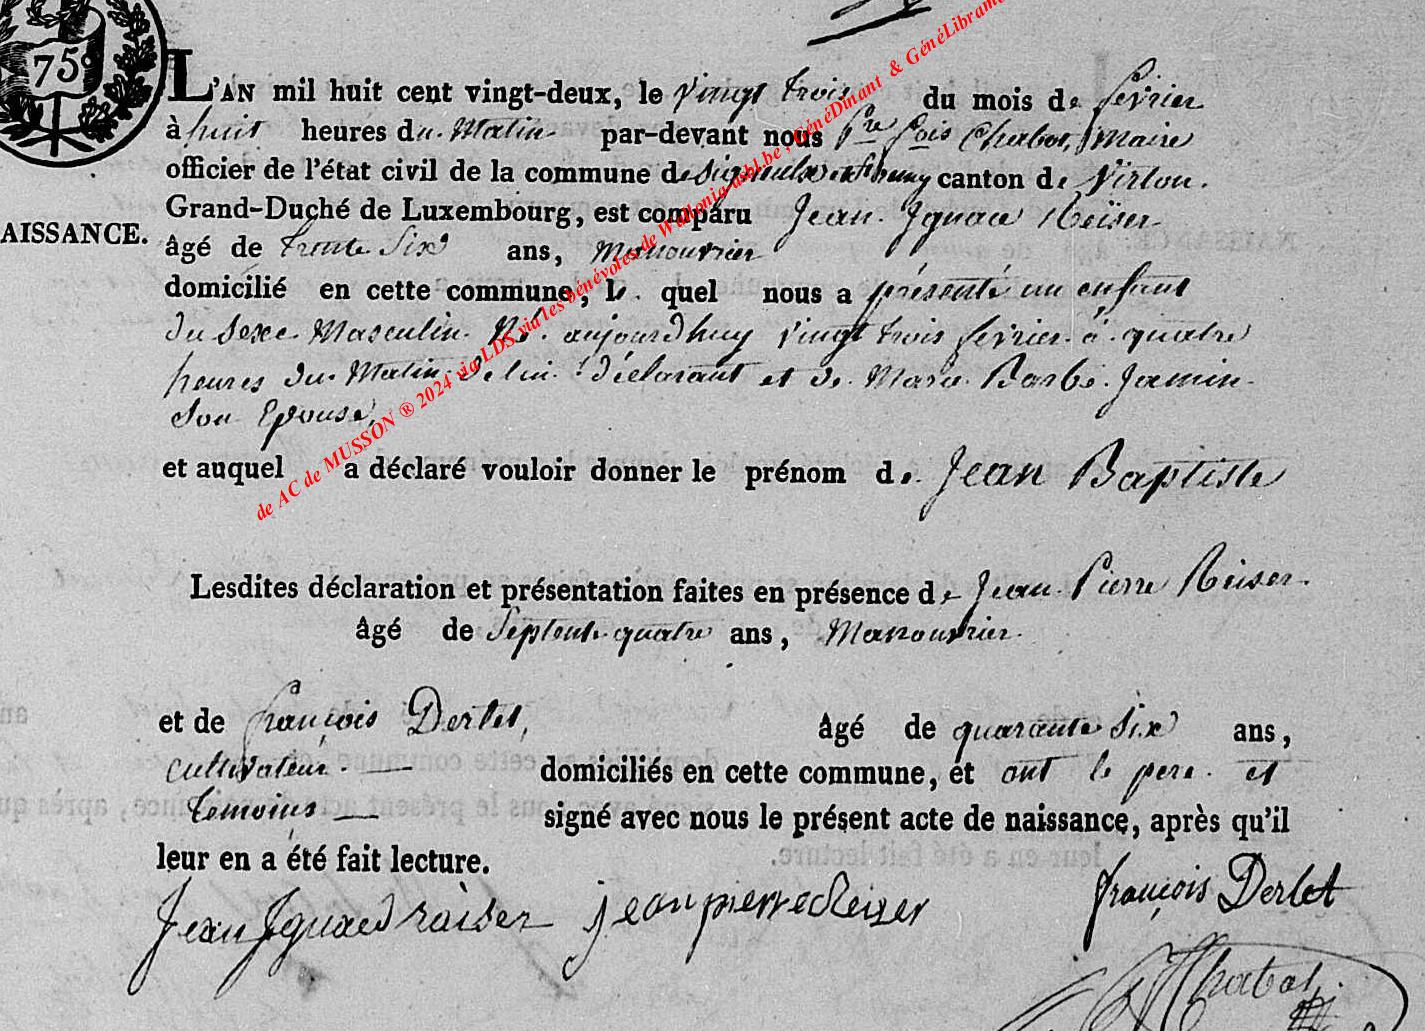 75c
L'AN mil huit cent vingt-deux, le vingt trois du mois de fevrier
à huit heures du Matin par-devant nous Pre fois Chabot, Maire
officier de l'état civil de la commune de canton de Virton.
Grand-Duché de Luxembourg, est comparu Jean Ignace Reïser
AISSANCE.
âgé de trente Six ans, Manouvrier
domicilié en cette commune, le quel nous a présenté un enfant
du Sexe Masculin Né aujourdhuy vingt trois fevrier à quatre
heures du Matin de lui déclarant et de Marie Barbe Jamin
Son Epouse,
et auquel a déclaré vouloir donner le prénom de Jean Baptiste
Lesdites déclaration et présentation faites en présence de Jean Pierre Reiser
âgé de Septente quatre ans, Manouvrier
et de françois Derlet, âgé de quarante Six ans,
cultivateur domiciliés en cette commune, et ont le pere et
temoins signé avec nous le présent acte de naissance, après qu'il
leur en a été fait lecture.
Jean Ignace raiser jean pierre Reiser françois Derlet
Chabot
de AC de MUSSON ® 2024 via LDS via les bénévoles de Wallonia-asbl.be, GénéDinant & GénéLibramo